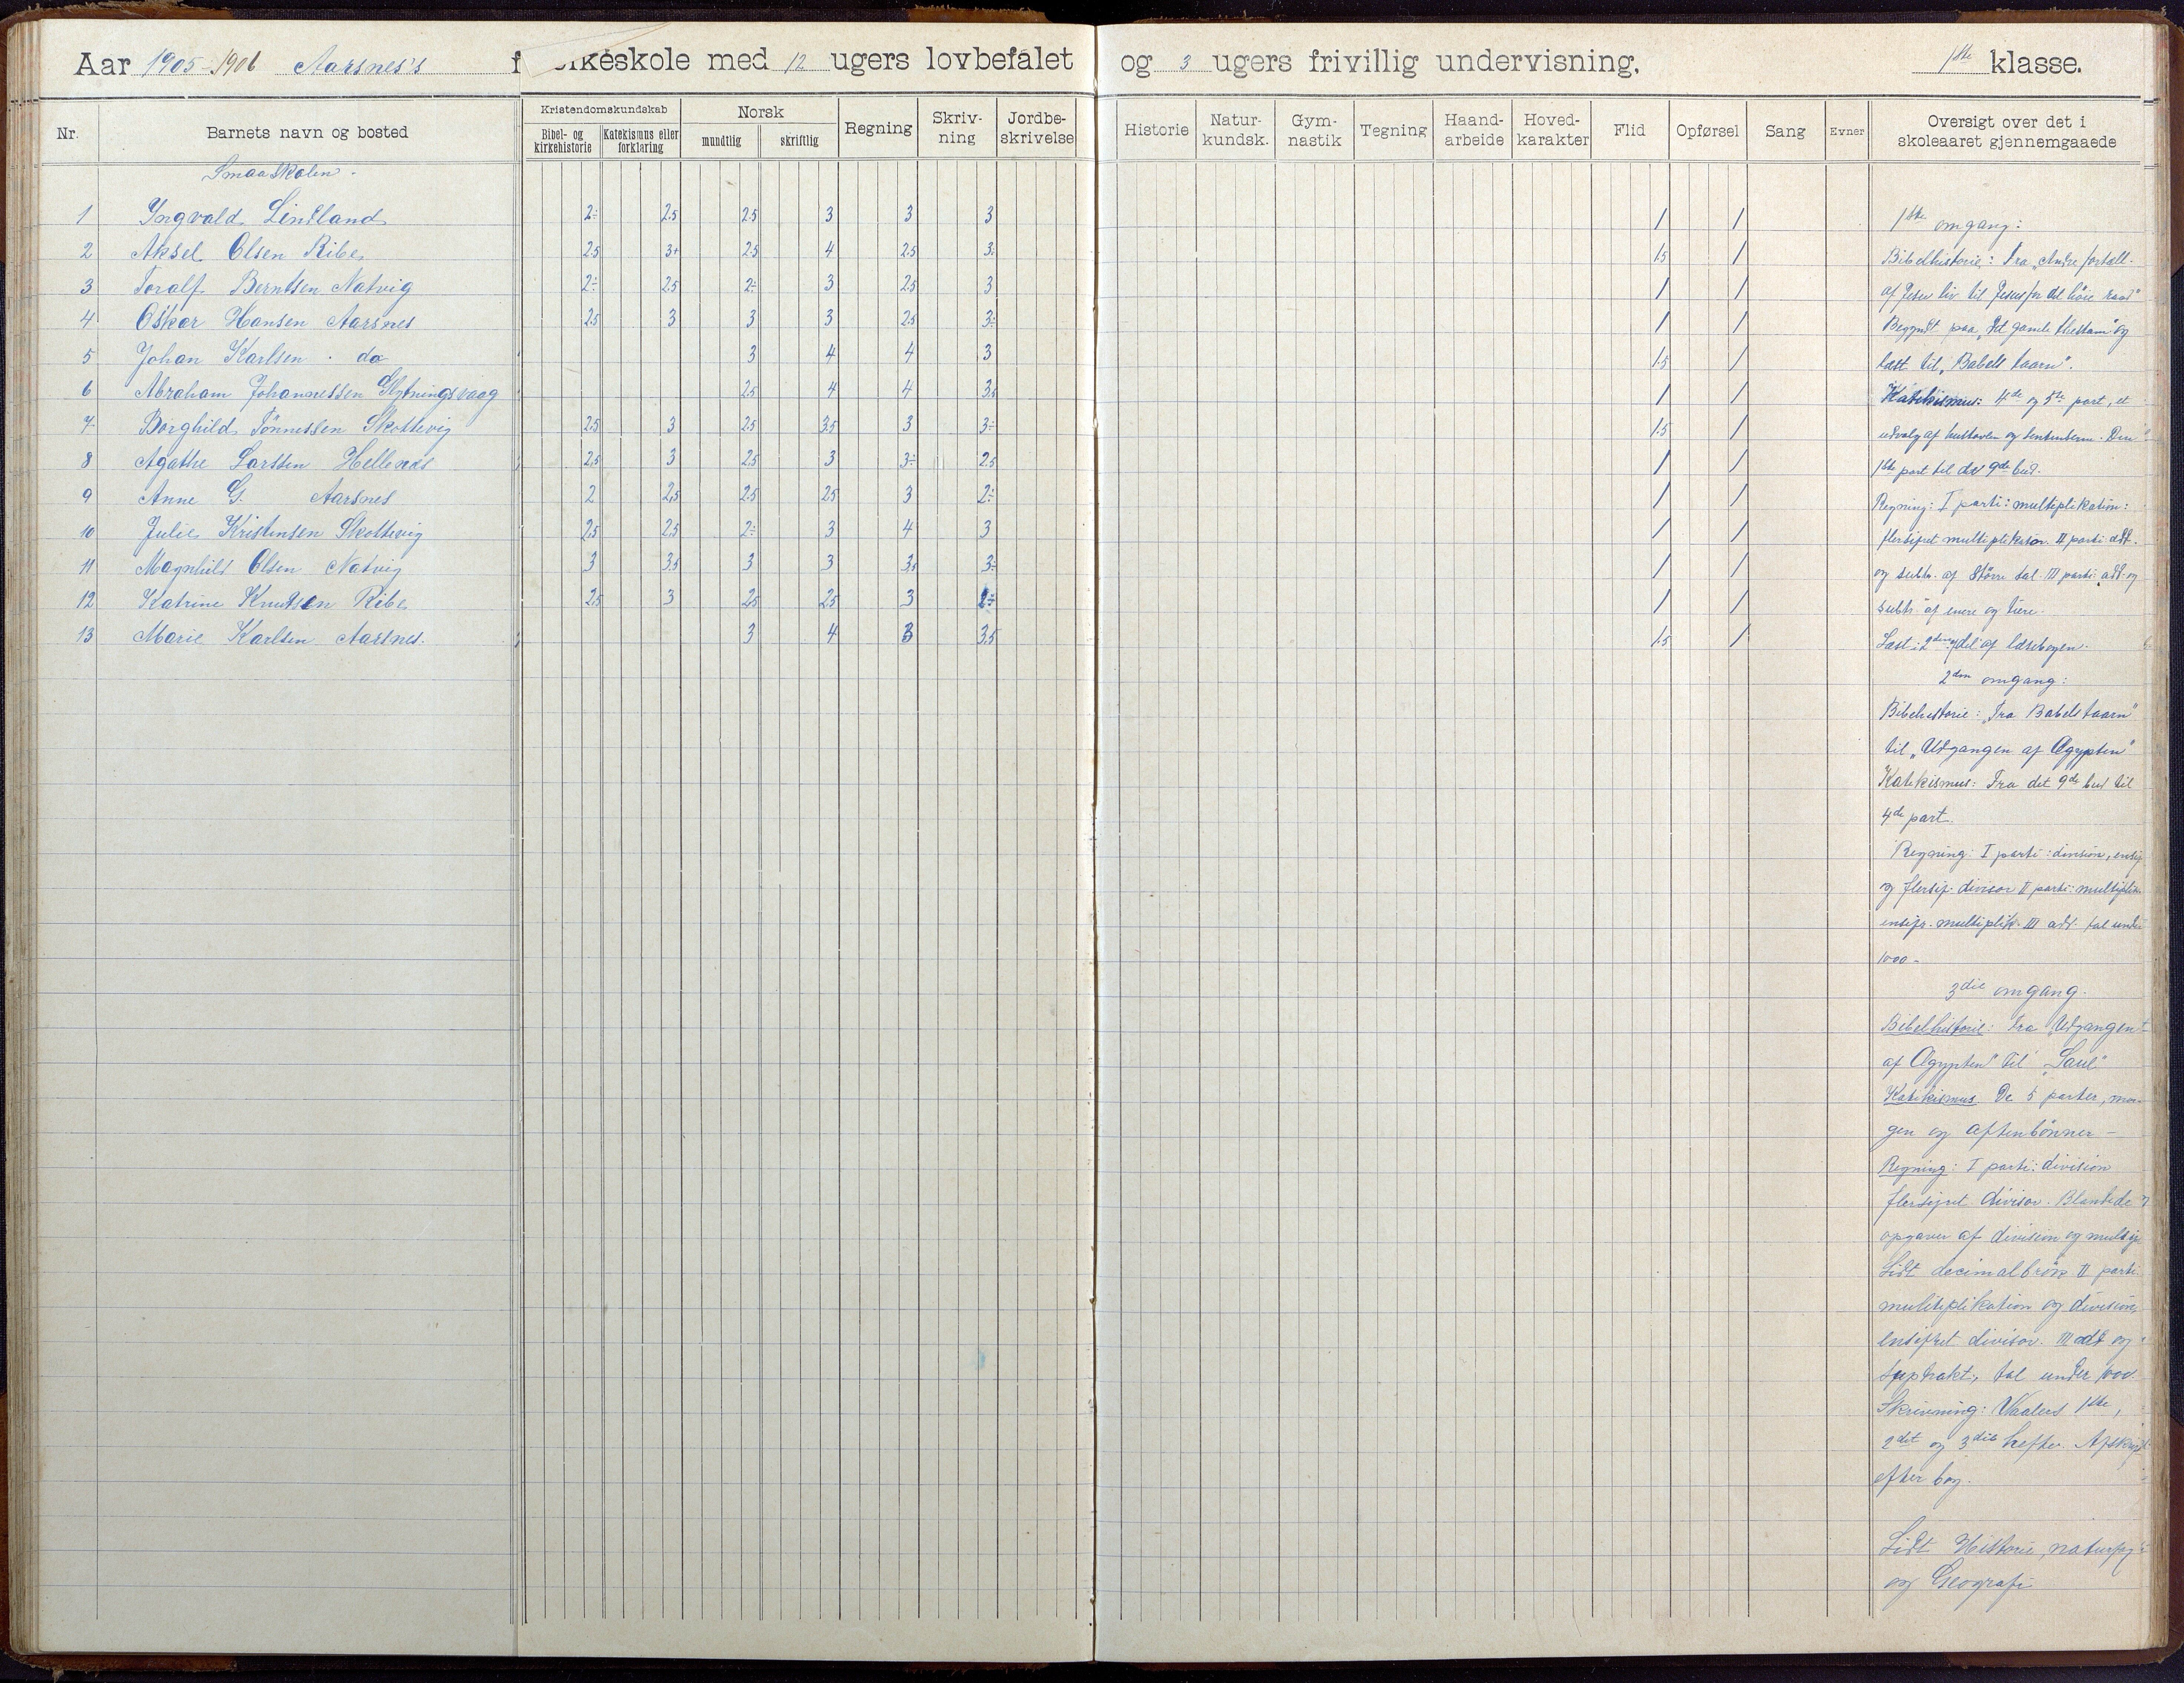 Aar 1905-1906 Aarsnes's folkeskole med 12 ugers lovbefalet og 3 ugers frivillig undervisning. 1ste klasse.
Nr. Barnets navn og bosted Kristendomskundskab Norsk Regning Skriv-ning Jordbe-skrivelse Historie Natur-kundsk. Gym-nastik Tegning Haand-arbeide Hoved-karakter Flid Opførsel Sang Evner Oversigt over det i skoleaaret gjennemgaaede
Bibel- og kirkehistorie Katekismus eller forklaring mundtlig skriftlig
Smaaskolen.
1 Yngvald Lindland 2÷ 2.5 2.5 3 3 3 1 1
2 Aksel Olsen Ribe 2.5 3+ 2.5 4 2.5 3÷ 1.5 1
3 Toralf Berntsen Natvig 2÷ 2.5 2÷ 3 2.5 3 1 1
4 Oskar Hansen Aarsnes 2.5 3 3 3 2.5 3÷ 1 1
5 Johan Karlsen do 3 4 4 3 1.5 1
6 Abraham Johannessen Glytningsvaag 2.5 4 4 3.5 1 1
7 Borghild Tønnessen Skottevig 2.5 3 2.5 3.5 3 3÷ 1.5 1
8 Agathe Larssen Hellevær 2.5 3 2.5 3 3÷ 2.5 1 1
9 Anne G. Aarsnes 2 2.5 2.5 2.5 3 2÷ 1 1
10 Julie Kristensen Skottevig 2.5 2.5 2÷ 3 4 3 1 1
11 Magnhild Olsen Natvig 3 3.5 3 3 3.5 3÷ 1 1
12 Katrine Knutsen Ribe 2.5 3 2.5 2.5 3 2÷ 1 1
13 Marie Karlsen Aarsnes. 3 4 3 3.5 1.5 1
1ste omgang:
Bibelhistorie: Fra "Andre fortæll.
af Jesu liv til Jesus for det høie raad"
Begyndt paa "Det gamle testam." og
læst til "Babels taarn".
Katekismus: 4de og 5te part, et
udvalg af hustavlen og sentenserne. Den
1ste part til det 9de bud.
Regning: I parti: multiplikation:
flersifret multiplikator. II parti add.
og subtr. af større tal. III parti: add. og
subtr. af enere og tiere.
Læst i 2den del af læsebogen.
2den omgang:
Bibelhistorie: "Fra Babels taarn"
til "Udgangen af Ægypten"
Katekismus: Fra det 9de bud til
4de part.
Regning: I parti: division, ensif.
og flersif. divisor II parti: multiplik.
ensifr. multiplik. III add. tal under
1000.
3die omgang.
Bibelhistorie: Fra Udgangen
af Ægypten" til "Saul"
Katekismus. De 5 parter, mor-
gen og aftenbønner -
Regning: I parti: division
flersifret divisor. Blandede
opgaver af division og multip.
Lidt decimalbrøk. II parti
multiplikation og division,
ensifret divisor. III add og
suptrakt., tal under 1000.
Skrivning: Waalers 1ste,
2det og 3die hefter. Afskrift
efter bog.
Lidt Historie, naturfag
og Geografi